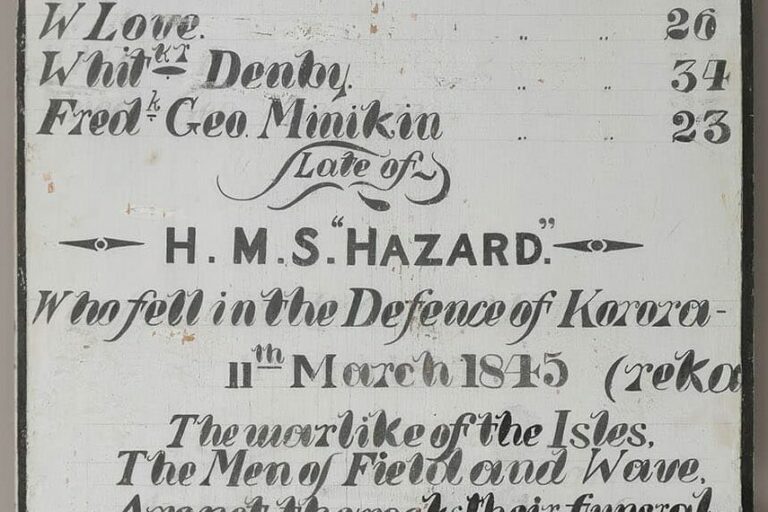 W Love. „ „ 26
Whit^kr Denby. „ „ 34
Fred^k Geo. Minikin „ „ 23
Late of
H.M.S. "HAZARD."
Who fell in the Defence of Korora-
11th March 1845 (reka
The warlike of the Isles,
The Men of Field and Wave,
Are not the rocks their funeral